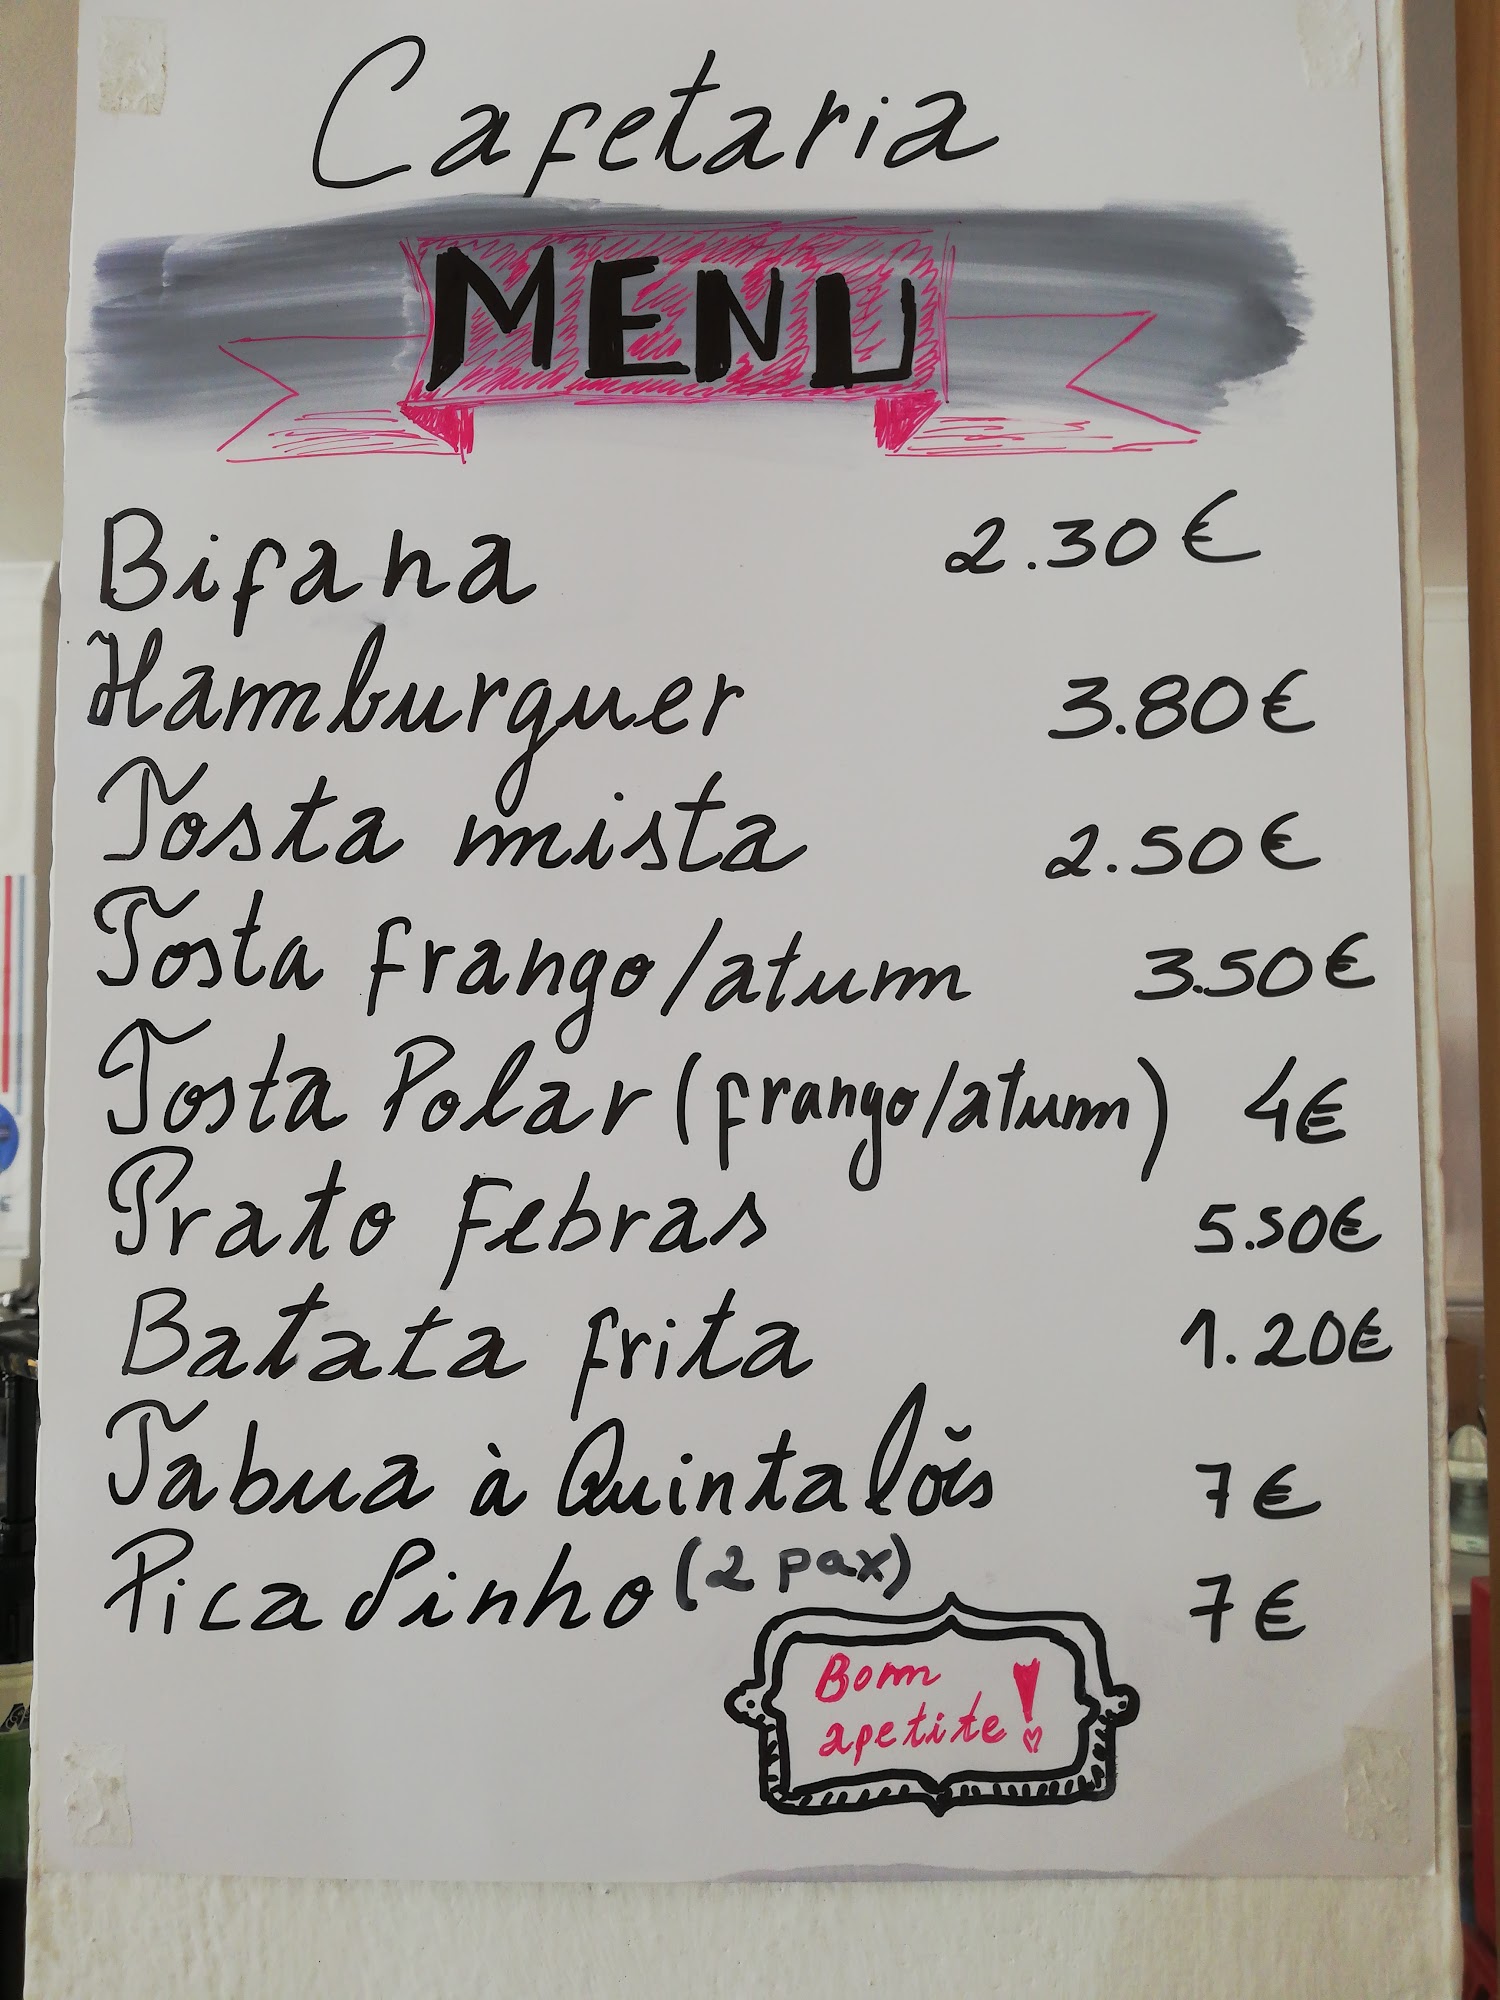 Cafetaria
MENU
Bifana 2.30€
Hamburguer 3.80€
Tosta mista 2.50€
Tosta frango/atum 3.50€
Tosta Polar (frango/atum) 4€
Prato Febras 5.50€
Batata frita 1.20€
Tabua à Quintalõis 7€
Picadinho (2 pax) 7€
Bom
apetite!